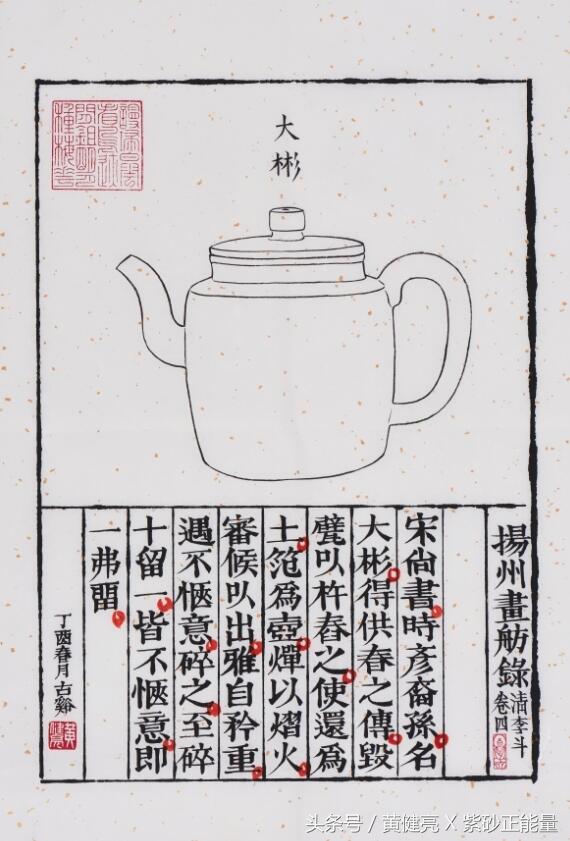 大彬
揚州畫舫錄 清李斗 卷四
宋尙書時彥裔孫名
大彬得供春之傳毀
甓㕥杵舂之使還為
土笵爲壺燀以熠火
審候㕥出雅自矜重
遇不愜意碎之至碎
十留一皆不愜意即
一弗畱
丁酉春月古谿
头条号 / 黄健亮 X 紫砂正能量